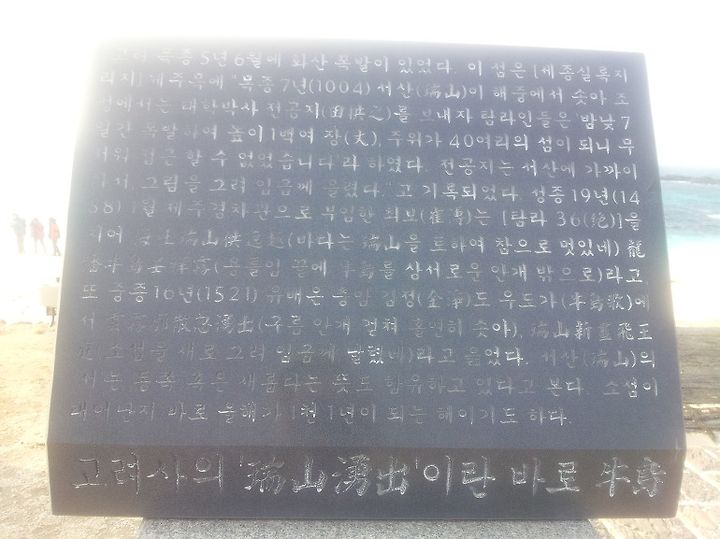 고려 목종 5년 6월에 화산 폭발이 있었다. 이 섬은 [세종실록지
리지] 제주목에 "목종 7년(1004) 서산(瑞山)이 해중에서 솟아 조
정에서는 태학박사 전공지(田拱之)를 보내자 탐라인들은 밤낮 7
일간 폭발하여 높이 1백여 장(丈), 주위가 40여리의 섬이 되니 무
서워 접근 할 수 없었습니다라 하였다. 전공지는 서산에 가까이
가서, 그림을 그려 임금께 올렸다."고 기록되었다. 성종 19년(14
88) 1월 제주경차관으로 부임한 최보(崔溥)는 [탐라 36(絶)]을
지어 瑞山 (바다는 瑞山을 토하여 참으로 멋있네) 龍
牛島 (용들임 끝에 牛島를 상서로운 안개 밖으로)라고
또 중종 16년(1521) 유배온 충암 김정(金淨)도 우도가(牛島歌)에
서 雲 散忽湧出(구름 안개 걷혀 홀연히 솟아), 瑞山新畫飛王
(소섬을 새로 그려 임금께 날렸네)라고 읊었다. 서산(瑞山)의
서는 동쪽 혹은 새롭다는 뜻도 함유하고 있다고 본다. 소섬이
태어난지 바로 올해가 1천 1년이 되는 해이기도 하다.
고려사의 '瑞山湧出'이란 바로 牛島